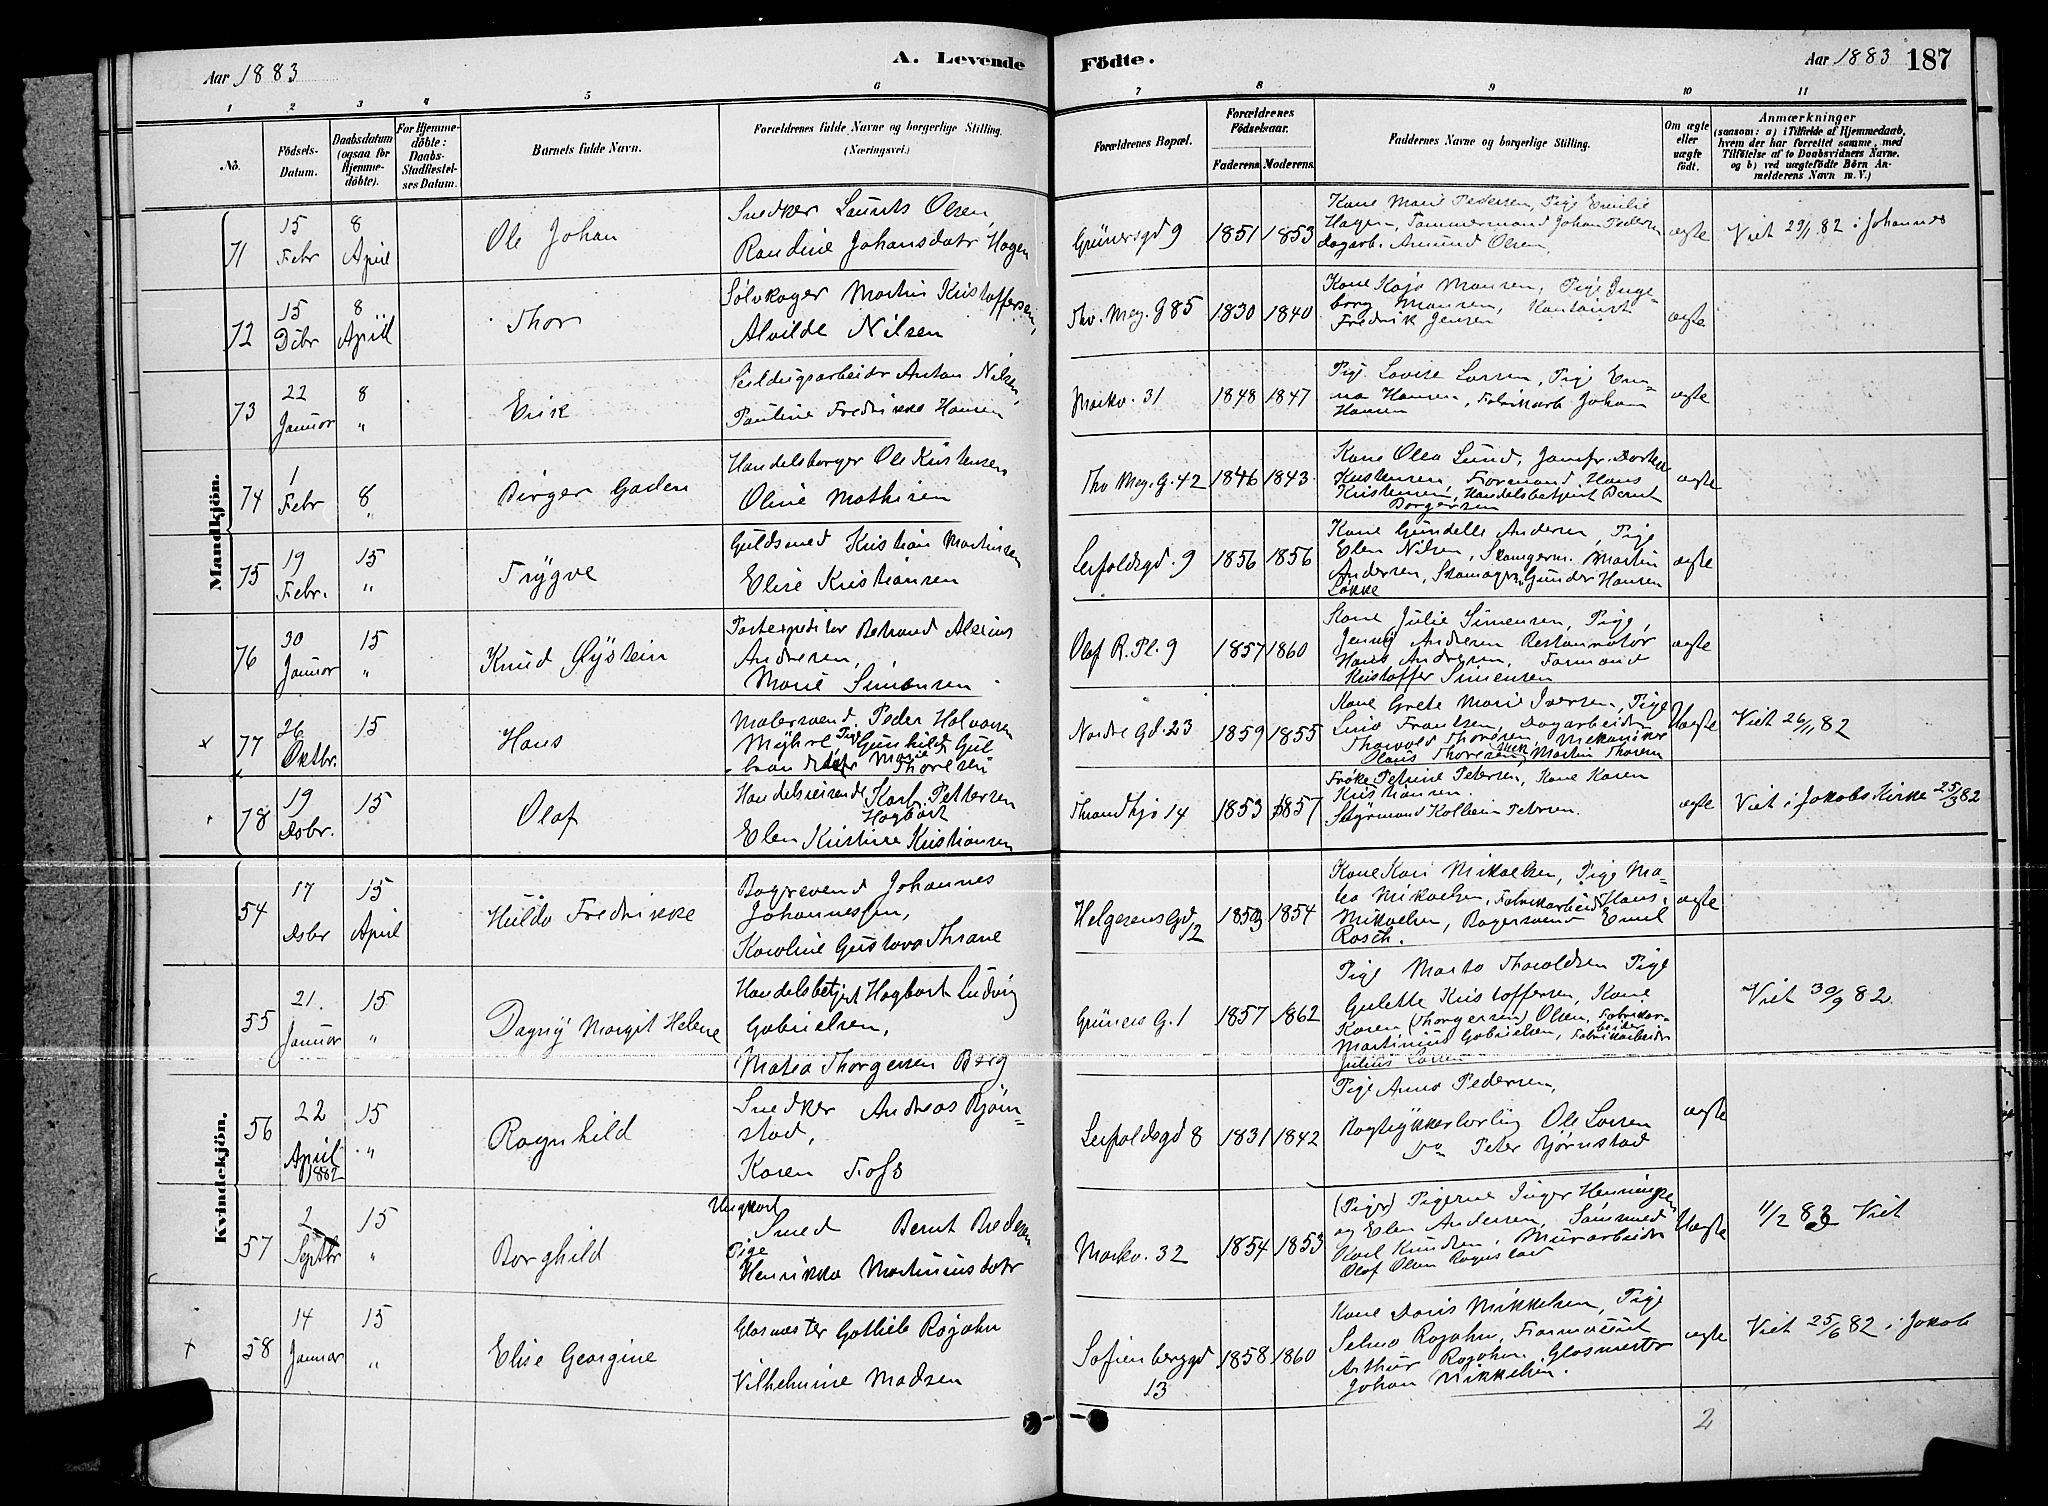 Aar 1883
A. Levende
Födte.
Aar 1883
187
1
2
3
4
5
6
7
8
9
10
11
No.
Födsels-
Datum.
Daabsdatum
(ogsaa for
Hjemme-
döbte).
For Hjemme-
döbte:
Daabs-
Stadfæstel-
ses Datum.
Barnets fulde Navn.
Forældrenes fulde Navne og borgerlige Stilling.
(Næringsvei.)
Forældrenes Bopæl.
Forældrenes
Födselsaar.
Faderens.
Moderens.
Faddernes Navne og borgerlige Stilling.
Om ægte
eller
uægte
födt.
Anmærkninger
(saasom: a) i Tilfælde af Hjemmedaab,
hvem der har forrettet samme, med
Tilföielse af to Daabsvidners Navne,
og b) ved uægtefödte Börn An-
melderens Navn m. V.)
Mandkjön.
71
15
Febr
8
April
Ole Johan
Snedker Laurits Olsen,
Randine Johansdatr Hagen
Grünersgd 9
1851
1853
Kone Marie Pedersen, Pige Emilie
Hagen, Tømmermand Johan Pedersen
dagarb. Amund Olsen,
ægte
Viet 29/1 82 i Johannes
72
15
Dcbr
8
April
Thor
Martin Kristoffersen,
Alvilde Nilsen
Thv. Mey. G 85
1830
1840
Kone Kaja Monsen, Pige Inge-
borg Monsen,
Fredrik Jensen
ægte
73
22
Januar
8
"
Erik
Seildugsarbeidr Anton Nilsen,
Pauline Fredrikke Hansen
Markv. 31
1848
1847
Pige Lovise Larsen, Pige Em-
ma Hansen, Fabrikarb Johan
Hansen
ægte
74
1
Febr
8
"
Birger Gaden
Handelsborger Ole Kristensen
Oline Mathisen
Thv Mey. G. 42
1846
1843
Kone Olea Lund, Jomfr. Dorthea
Kristensen, Formand Hans
Kristensen, Handelsbetjent Bernt
Borgersen
ægte
75
19
Febr.
15
"
Trygve
Guldsmed Kristian Martinsen
Elise Kristiansen
Leifoldsgd. 9
1856
1856
Kone Gundelle Andersen, Pige
Elen Nilsen, Skomagerm. Martin
Andersen, Skomagerm Gunder Hansen
Løkke
ægte
76
30
Januar
15
"
Knud Øystein
Postexpeditør Betrand Alexius
Andresen,
Marie Simensen
Olaf R. Pl. 9
1857
1860
Kone Julie Simensen, Pige
Jenny Andresen Restauratør
Hans Andresen, Formand
Kristoffer Simensen
ægte
77
26
Oktbr.
15
Hans
Malersvend. Peder Halvorsen
Myhre Pige Gunhild Gul
bran datr Marie Thoresen
Nordre Gd. 23
1859
1855
Kone Grete Marie Iversen, Pige
Lina Frantsen, Dagarbeider
Thorvald Thoresen, Mekaniker
Olaus Thoresen, Mek. Martin Thoresen
Uægte
Viet 26/11 82
78
19
Dsbr.
15
Olaf
Handelsreisende Karl Pettersen
Hagbart
Elen Kristine Kristiansen
Throndhj 14
1853
1857
Frøken Petrine Petersen, Kone Karen
Kristiansen.
Styrmand Kolbein Petersen.
ægte
Viet i Jakobs Kirke 25/3 82
Kvindekjön.
54
17
Dsbr
15
April
Hulda Fredrikke
Bagersvend Johannes
Johannessen,
Karoline Gustava Thrane
Helgesens Gd
12
1853
1854
Kone Kari Mikaelsen, Pige Ma-
tea Mikaelsen, Fabrikarbeider Hans
Mikaelsen, Bagersvend Emil
Rasch.
ægte
55
21.
Januar
15
"
Dagny Margit Helene
Handelsbetjent Hagbart Ludvig
Gabrielsen,
Matea Thorgersen Berg
Grüners G. 1
1857
1862
Pige Marta Tharaldsen Pige
Gulette Kristoffersen, Kone
Karen (Thorgersen) Olsen, Fabrikar-
beider
Martinius Gabrielsen, Fabrikarbeider
Julius Larsen
Viet 30/9 82.
56
22
April
1882
15
"
Ragnhild
Snedker Andreas Bjørn-
stad,
Karen Foss
Leifoldsgd 8
1831
1842
Pige Anna Pedersen,
Bogtrykkerlærling Ole Larsen
Do Peter Bjørnstad
ægte
57
2
Septbr
15
"
Borghild
Ungkarl
Smed Bernt Bredesen
Pige
Henrikka Martiniusdatr
Markv. 32
1854
1853
(Piger) Pigerne Inger Henningsen
og Elen Andersen,
Karl Knudsen, Murarbeider
Olaf Olsen Rognstad
Uægte
11/2 83 Viet
58
14
Januar
15
"
Elise Georgine
Glasmester Gotlieb Rojahn
Vilhelmine Madsen
Sofienberggd
13
1858
1860
Kone Doris Mikkelsen, Pige
Selma Rojahn, Farmaceut
Arthur Rojahn, Glasmester
Johan Mikkelsen.
ægte
Viet 25/6 82 i Jakob
2